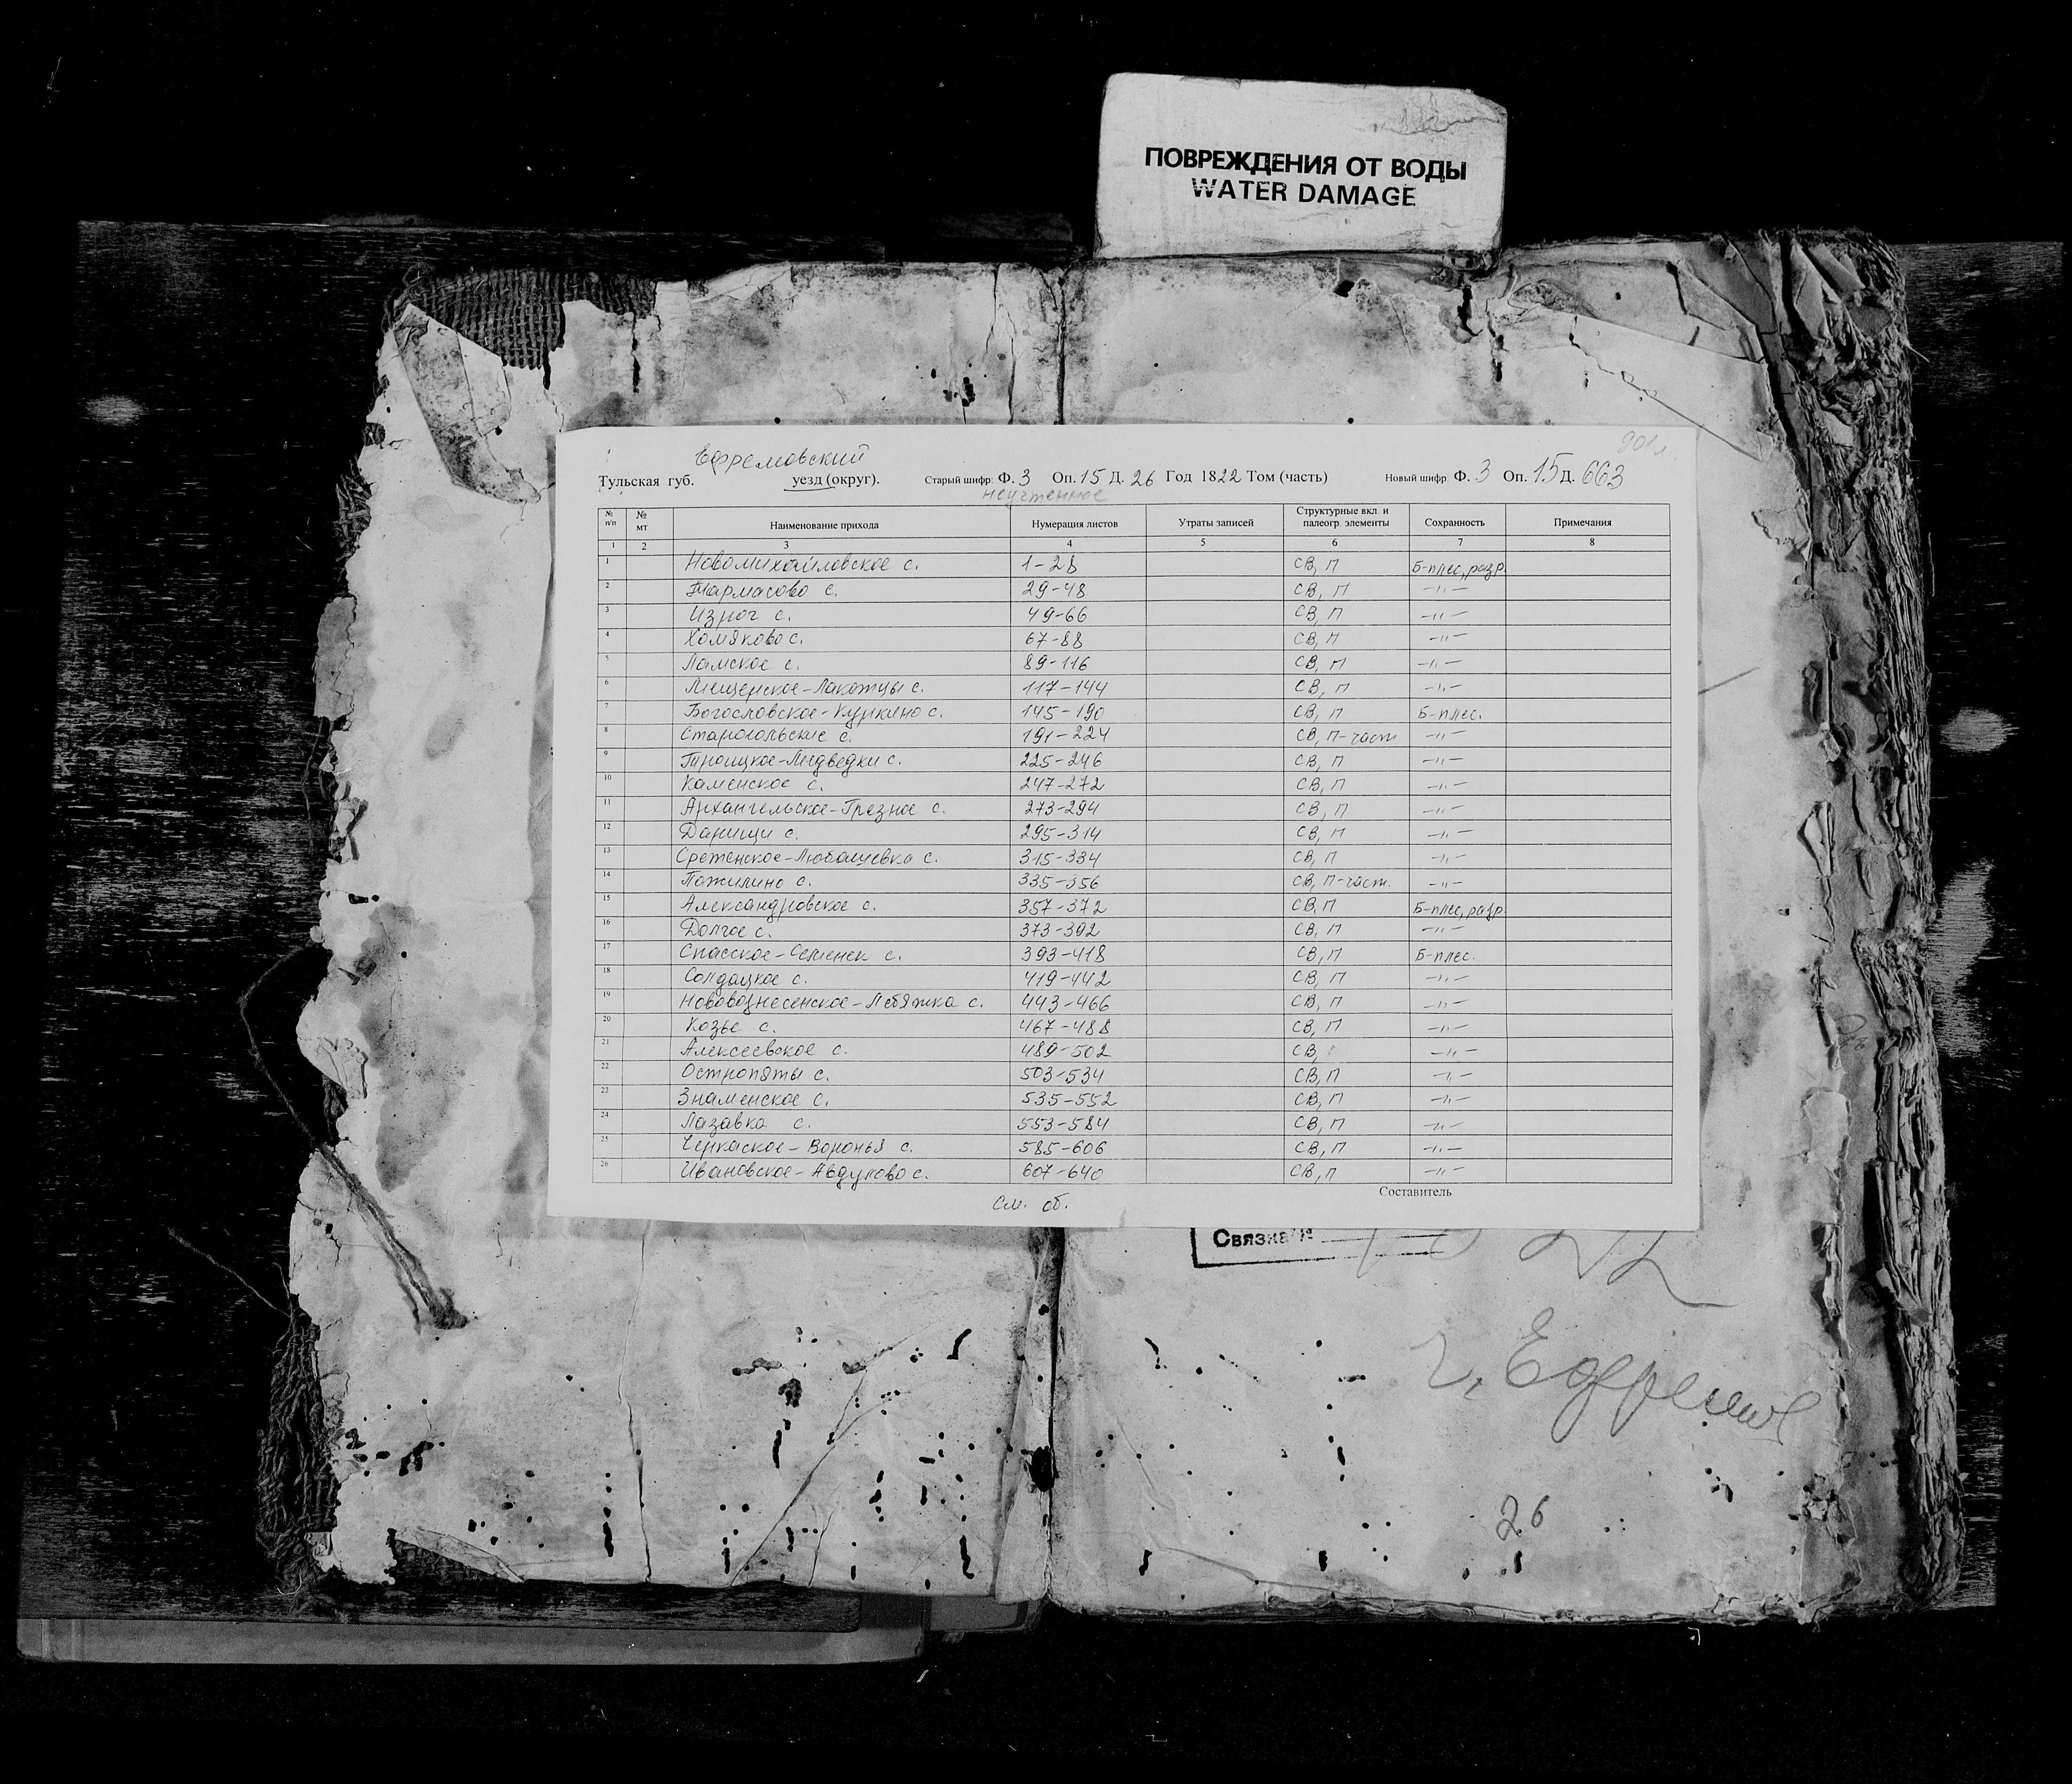 ПОВРЕЖДЕНИЯ ОТ ВОДЫ
WATER DAMAGE
901 л.
Ефремовский
Тульская губ. уезд (округ). Старый шифр: Ф. 3 Оп. 15 Д. 26 Год 1822 Том (часть) Новый шифр Ф. 3 Оп. 15 Д. 663
неучтенное
№ п/п № мт Наименование прихода Нумерация листов Утраты записей Структурные вкл. и палеогр. элементы Сохранность Примечания
1 2 3 4 5 6 7 8
1 Новомихайловское с. 1-28 СВ, П Б-плес, разр.
2 Тормасово с. 29-48 СВ, П -"-
3 Изрог с. 49-66 СВ, П -"-
4 Хомяково с. 67-88 СВ, П -"-
5 Ламское с. 89-116 СВ, П -"-
6 Мещерское-Лакотцы с. 117-144 СВ, П -"-
7 Богословское-Куркино с. 145-190 СВ, П Б-плес.
8 Старогольские с. 191-224 СВ, П-част. -"-
9 Троицкое-Медведки с. 225-246 СВ, П -"-
10 Каменское с. 247-272 СВ, П -"-
11 Архангельское-Грезное с. 273-294 СВ, П -"-
12 Дарищи с. 295-314 СВ, П -"-
13 Сретенское-Любашевка с. 315-334 СВ, П -"-
14 Пожилино с. 335-356 СВ, П-част. -"-
15 Александровское с. 357-372 СВ, П Б-плес, разр.
16 Долгое с. 373-392 СВ, П -"-
17 Спасское-Семенек с. 393-418 СВ, П Б-плес.
18 Солдацкое с. 419-442 СВ, П -"-
19 Нововознесенское-Лебяжка с. 443-466 СВ, П -"-
20 Козье с. 467-488 СВ, П -"-
21 Алексеевское с. 489-502 СВ, -"-
22 Остропяты с. 503-534 СВ, П -"-
23 Знаменское с. 535-552 СВ, П -"-
24 Лазавка с. 553-584 СВ, П -"-
25 Черкаское-Воронья с. 585-606 СВ, П -"-
26 Ивановское-Авдулово с. 607-640 СВ, П -"-
См. об. Составитель
Связка №
г. Ефремов
26